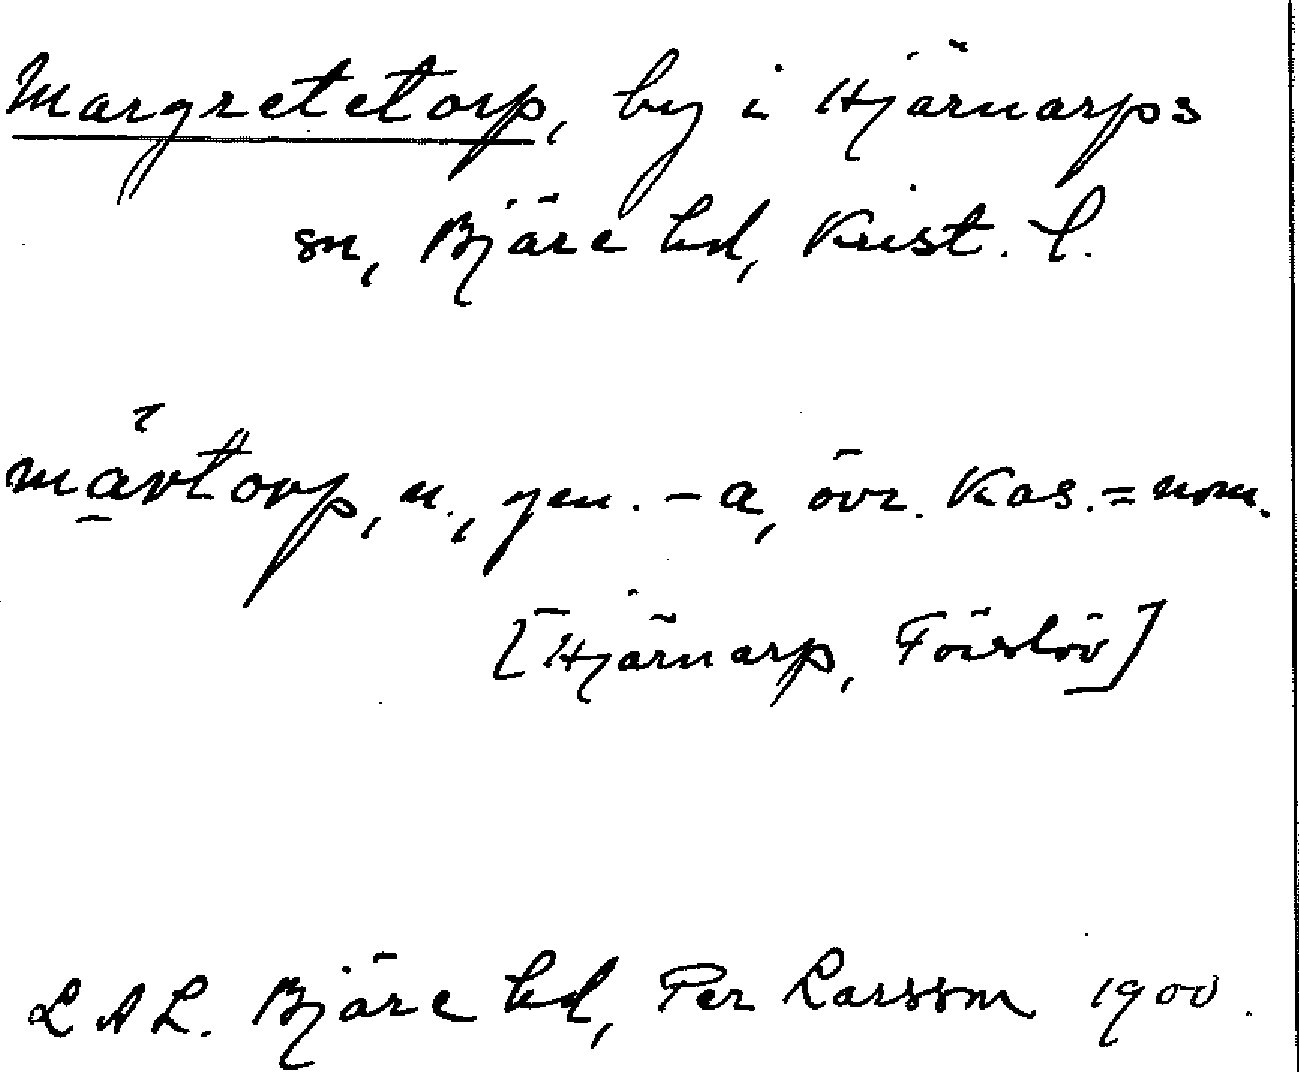 Margretetorp, by i Hjärnarps
sn, Bjäre hd, Krist. l.
mârtorp, n., gen. -a, övr. Kas. = nom.
[Hjärnarp, Förslöv]
LAL. Bjäre hd, Per Larsson 1900.